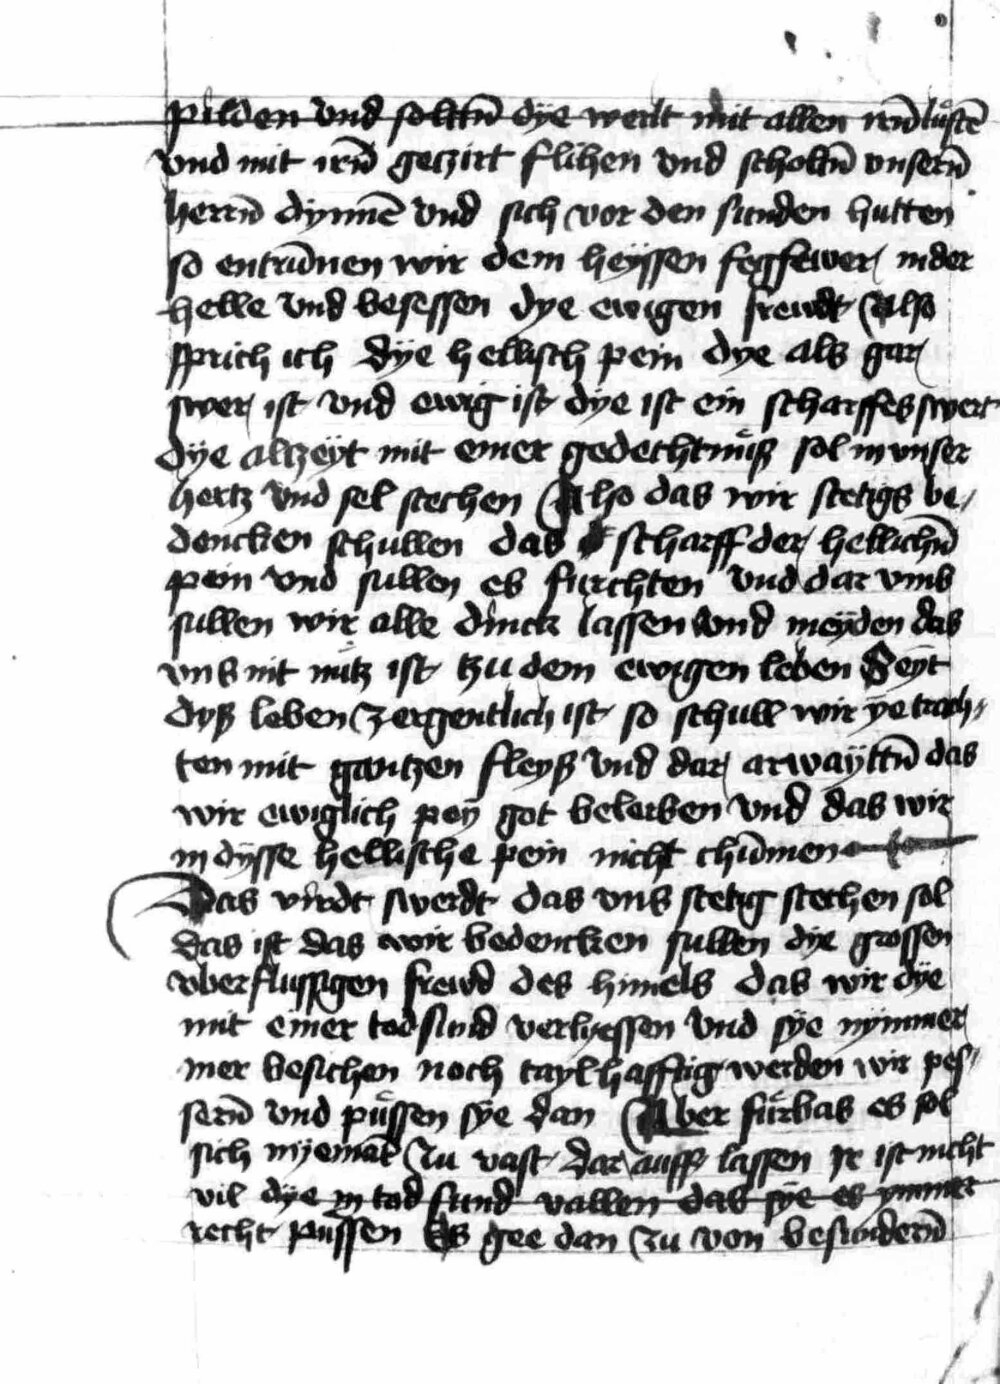 pilden vnd soltñ dÿe werlt mit allen irñ lüstē
vnd mit irñ geczirt flihen vnd scholtñ vnserñ
herrñ dynnē vnd sich vor den sunden hutten
so entrūnen wir dem heÿssen fegfewer in der
helle vnd besessen dye ewigen frewdt Also
sprich ich Dÿe hellisch pein dye als gar
swer ist vnd ewig ist dye ist ein scharffes swert
dÿe alczeÿt mit einer gedechtnüß sol in vnser
hertz vnd sel stechen Also das wir stetigs be-
dencken schullen das scharff der hellichñ
pein vnd sullen es furchten vnd dar vmb
sullen wir alle dinck lassen vnd meÿden das
vns nit nütz ist tzu dem ewigen leben Seÿt
dyß leben zergentlich ist so schull wir ÿe trach-
ten mit gantzen fleyß vnd dar arwaÿttñ das
wir ewiglich peÿ got beleiben vnd das wir
in dÿsse hellische pein nicht chūmen
Das virdt swerdt das vns stetig stechen sol
das ist das wir bedencken sullen dye grossen
vberflussigen frewd des himels das wir dÿe
mit einer todsund verlyessen vnd sÿe nymmer
mer besichen noch taylhafftig werden wir pes-
serñ vnd püssen sÿe dan Aber fürbas es sol
sich nÿemāt zu vast dar auff lassen Ir ist nicht
vil dÿe in tod sund vallen das sÿe es ymmer
recht pussen Es gee dan zu von besunderñ